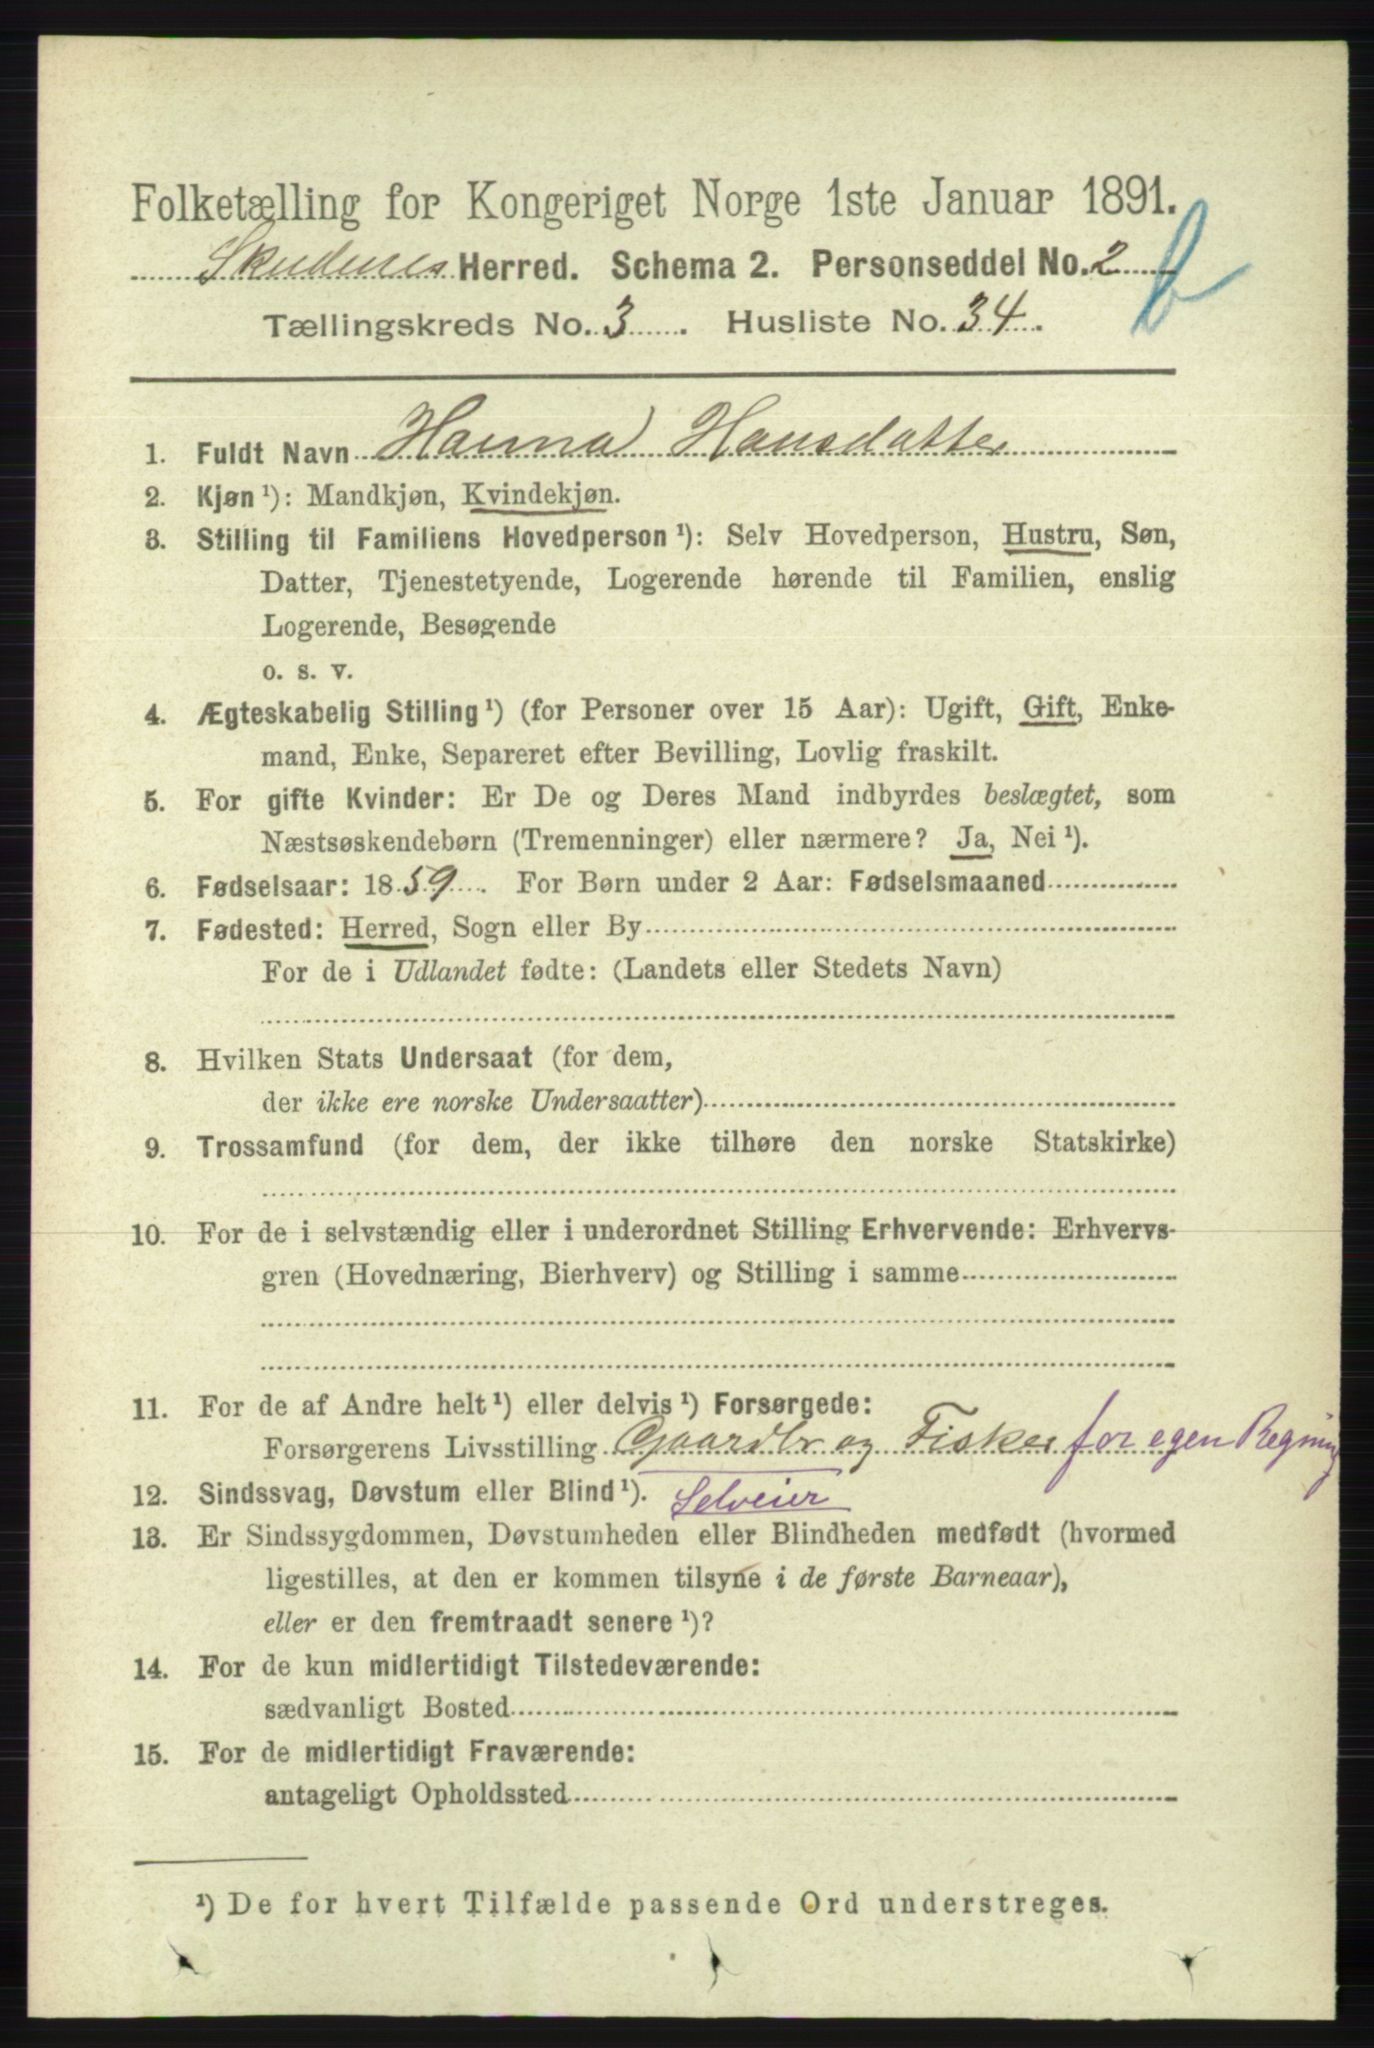 Folketælling for Kongeriget Norge 1ste Januar 1891.
Skudenes Herred. Schema 2. Personseddel No. 2
b
Tællingskreds No. 3. Husliste No. 34.
1. Fuldt Navn Hanna Hansdatter
2. Kjøn ¹): Mandkjøn, Kvindekjøn.
3. Stilling til Familiens Hovedperson ¹): Selv Hovedperson, Hustru, Søn,
Datter, Tjenestetyende, Logerende hørende til Familien, enslig
Logerende, Besøgende
o. s. v.
4. Ægteskabelig Stilling ¹) (for Personer over 15 Aar): Ugift, Gift, Enke-
mand, Enke, Separeret efter Bevilling, Lovlig fraskilt.
5. For gifte Kvinder: Er De og Deres Mand indbyrdes beslægtet, som
Næstsøskendebørn (Tremenninger) eller nærmere? Ja, Nei ¹).
6. Fødselsaar: 1859. For Børn under 2 Aar: Fødselsmaaned
7. Fødested: Herred, Sogn eller By
For de i Udlandet fødte: (Landets eller Stedets Navn)
8. Hvilken Stats Undersaat (for dem,
der ikke ere norske Undersaatter)
9. Trossamfund (for dem, der ikke tilhøre den norske Statskirke)
10. For de i selvstændig eller i underordnet Stilling Erhvervende: Erhvervs-
gren (Hovednæring, Bierhverv) og Stilling i samme
11. For de af Andre helt ¹) eller delvis ¹) Forsørgede:
Forsørgerens Livsstilling Gaardbr og Fisker for egen Regning
12. Sindssvag, Døvstum eller Blind ¹). Selveier
13. Er Sindssygdommen, Døvstumheden eller Blindheden medfødt (hvormed
ligestilles, at den er kommen tilsyne i de første Barneaar),
eller er den fremtraadt senere ¹)?
14. For de kun midlertidigt Tilstedeværende:
sædvanligt Bosted
15. For de midlertidigt Fraværende:
antageligt Opholdssted
¹) De for hvert Tilfælde passende Ord understreges.